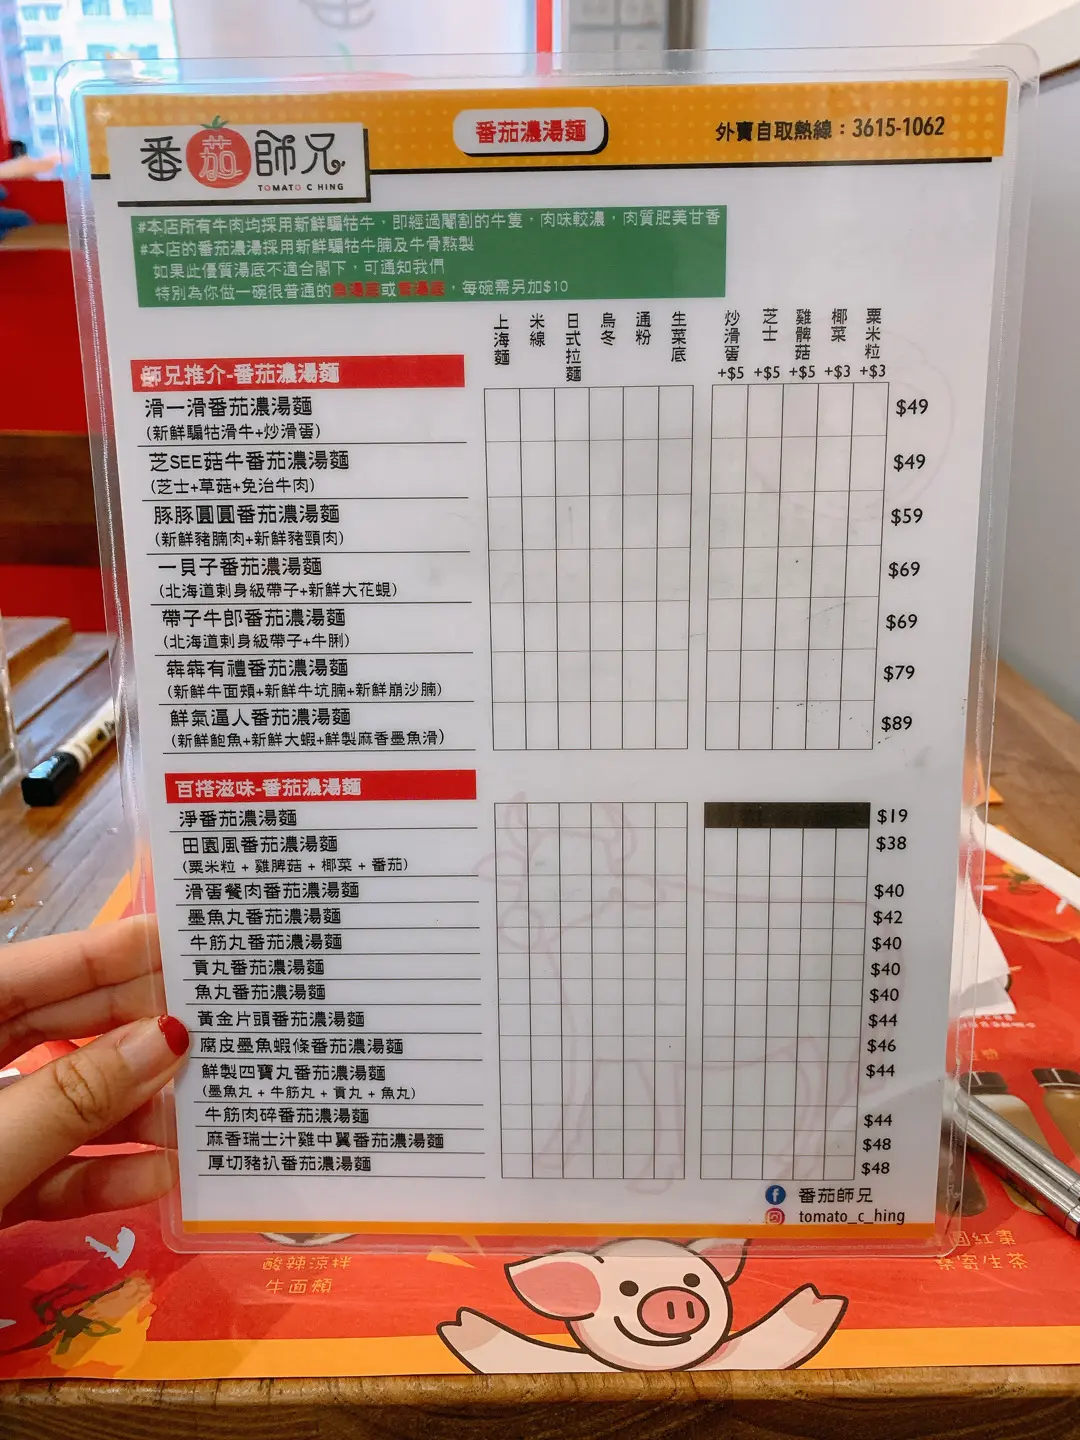 番茄師兄
TOMATO C HING
番茄濃湯麵
外賣自取熱線：3615-1062
#本店所有牛肉均採用新鮮騸牯牛，即經過閹割的牛隻，肉味較濃，肉質肥美甘香
#本店的番茄濃湯採用新鮮騸牯牛腩及牛骨熬製
如果此優質湯底不適合閣下，可通知我們
特別為你做一碗很普通的 或 ，每碗需另加$10
上海麵 米線 日式拉麵 烏冬 通粉 生菜底 炒滑蛋 芝士 雞髀菇 椰菜 粟米粒
+$5 +$5 +$5 +$3 +$3
師兄推介-番茄濃湯麵
滑一滑番茄濃湯麵 $49
(新鮮騸牯滑牛+炒滑蛋)
芝SEE菇牛番茄濃湯麵 $49
(芝士+草菇+免治牛肉)
豚豚圓圓番茄濃湯麵 $59
(新鮮豬腩肉+新鮮豬頸肉)
一貝子番茄濃湯麵 $69
(北海道刺身級帶子+新鮮大花蜆)
帶子牛郎番茄濃湯麵 $69
(北海道刺身級帶子+牛脷)
犇犇有禮番茄濃湯麵 $79
(新鮮牛面頰+新鮮牛坑腩+新鮮崩沙腩)
鮮氣逼人番茄濃湯麵 $89
(新鮮鮑魚+新鮮大蝦+鮮製麻香墨魚滑)
百搭滋味-番茄濃湯麵
淨番茄濃湯麵 $19
田園風番茄濃湯麵 $38
(粟米粒 + 雞脾菇 + 椰菜 + 番茄)
滑蛋餐肉番茄濃湯麵 $40
墨魚丸番茄濃湯麵 $42
牛筋丸番茄濃湯麵 $40
貢丸番茄濃湯麵 $40
魚丸番茄濃湯麵 $40
黃金片頭番茄濃湯麵 $44
腐皮墨魚蝦條番茄濃湯麵 $46
鮮製四寶丸番茄濃湯麵 $44
(墨魚丸 + 牛筋丸 + 貢丸 + 魚丸)
牛筋肉碎番茄濃湯麵 $44
麻香瑞士汁雞中翼番茄濃湯麵 $48
厚切豬扒番茄濃湯麵 $48
番茄師兄
tomato_c_hing
酸辣涼拌
牛面頰
圓紅棗
桑寄生茶